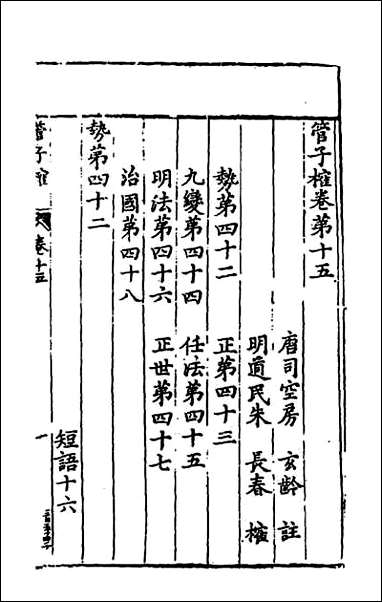 管子榷卷第十五
唐司空房　玄齡　註
明道民朱　長春　榷
勢第四十二　正第四十三
九變第四十四　任法第四十五
明法第四十六　正世第四十七
治國第四十八
勢第四十二　短語十六
管子榷　卷十五　一